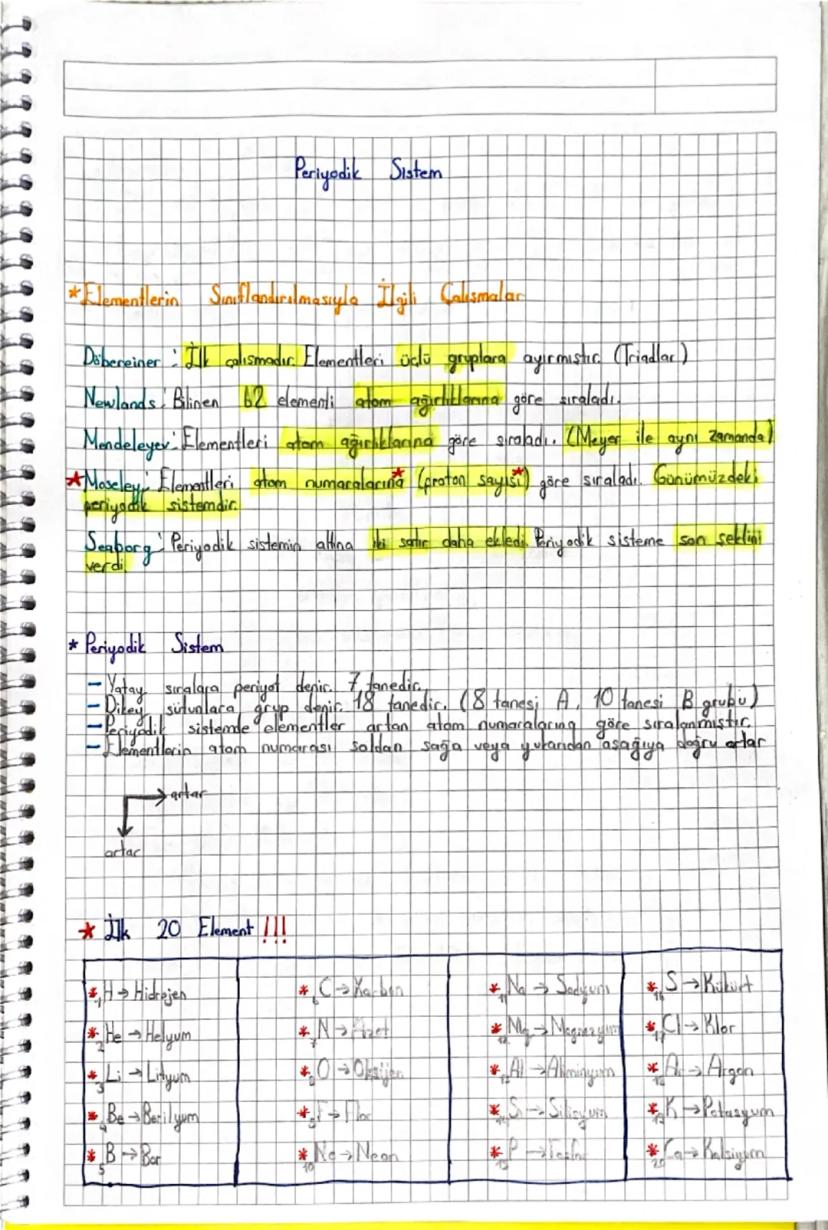 Periyodik Sistem
*Elementlerin Sınıflandırılmasıyla İlgili Çalışmalar
Döbereiner: İlk çalışmadır. Elementleri üçlü gruplara ayırmıştır. (Triadlar)
Newlands: Bilinen 62 elementi atom ağırlıklarına göre sıraladı.
Mendeleyev: Elementleri atom ağırlıklarına göre sıraladı. (Meyer ile aynı zamanda)
*Moseley: Elementleri atom numaralarına* (proton sayısı*) göre sıraladı. Günümüzdeki
periyodik sistemdir.
Seaborg: Periyodik sistemin altına iki satır daha ekledi. Periyodik sisteme son şeklini
verdi.
* Periyodik Sistem
- Yatay sıralara periyot denir. 7 tanedir.
- Dikey sütunlara grup denir. 18 tanedir. (8 tanesi A, 10 tanesi B grubu)
- Periyodik sistemde elementler artan atom numaralarına göre sıralanmıştır.
- Elementlerin atom numarası soldan sağa veya yukarıdan aşağıya doğru artar
→ artar
artar
* İlk 20 Element !!!
* 1H → Hidrojen
* 2He → Helyum
* 3Li → Lityum
* 4Be → Berilyum
* 5B → Bor
* 6C → Karbon
* 7N → Azot
* 8O → Oksijen
* 9F → Flor
* 10Ne → Neon
* 11Na → Sodyum
* 12Mg → Magnezyum
* 13Al → Alüminyum
* 14Si → Silisyum
* 15P → Fosfor
* 16S → Kükürt
* 17Cl → Klor
* 18Ar → Argon
* 19K → Potasyum
* 20Ca → Kalsiyum